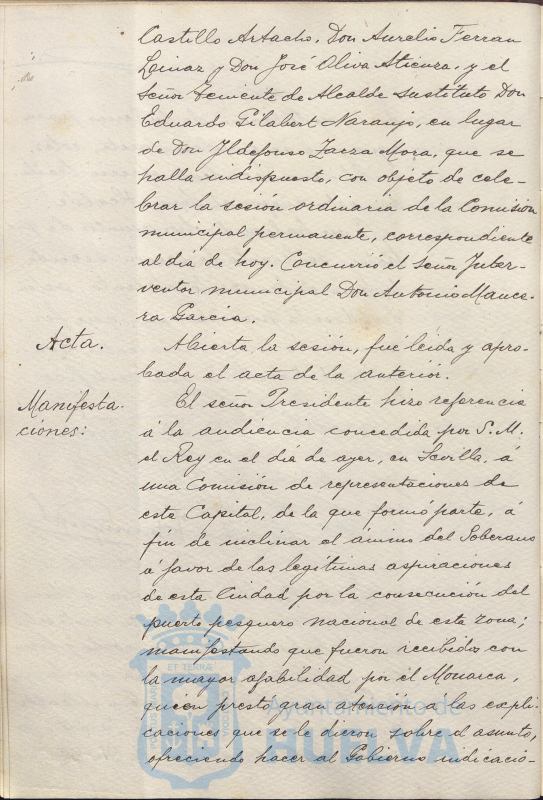 Castillo Artacho, Don Aurelio Ferran
Linaz y Don José Oliva Atienza, y el
Señor Teniente de Alcalde sustituto Don
Eduardo Gilabert Naranjo, en lugar
de Don Ildefonso Zarza Mora, que se
halla indispuesto, con objeto de cele-
brar la sesion ordinaria de la Comision
municipal permanente, correspondiente
al dia de hoy. Concurrió el Señor Inter-
ventor municipal Don Antonio Mance-
ra Garcia.
Acta.
Abierta la sesión, fué leida y apro-
bada el acta de la anterior.
Manifesta-
ciones:
El señor Presidente hizo referencia
á la audiencia concedida por S. M.
el Rey en el dia de ayer, en Sevilla, á
una Comisión de representaciones de
esta Capital, de la que formó parte, á
fin de inclinar el ánimo del Soberano
á favor de las legítimas aspiraciones
de esta Ciudad por la consecución del
puerto pesquero nacional de esta zona;
manifestando que fueron recibidos con
la mayor afabilidad por el Monarca,
quien prestó gran atención a las expli-
caciones que se le dieron sobre el asunto,
ofreciendo hacer al Gobierno indicacio-
ET TERRÆ
Ayuntamiento de
HUELVA